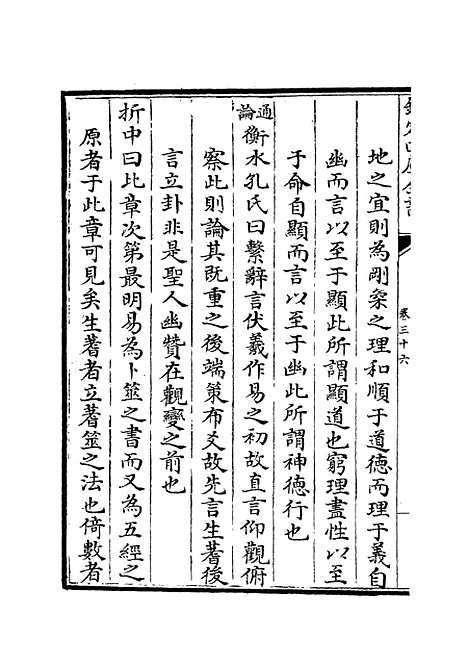 欽定四庫全書
卷三十六
地之宜則為剛柔之理和順于道德而理于義自
幽而言以至于顯此所謂顯道也窮理盡性以至
于命自顯而言以至于幽此所謂神德行也
通論衡水孔氏曰繫辭言伏羲作易之初故直言仰觀俯
察此則論其既重之後端策布爻故先言生蓍後
言立卦非是聖人幽贊在觀變之前也
折中曰此章次第最明易為卜筮之書而又為五經之
原者于此章可見矣生蓍者立蓍筮之法也倚數者